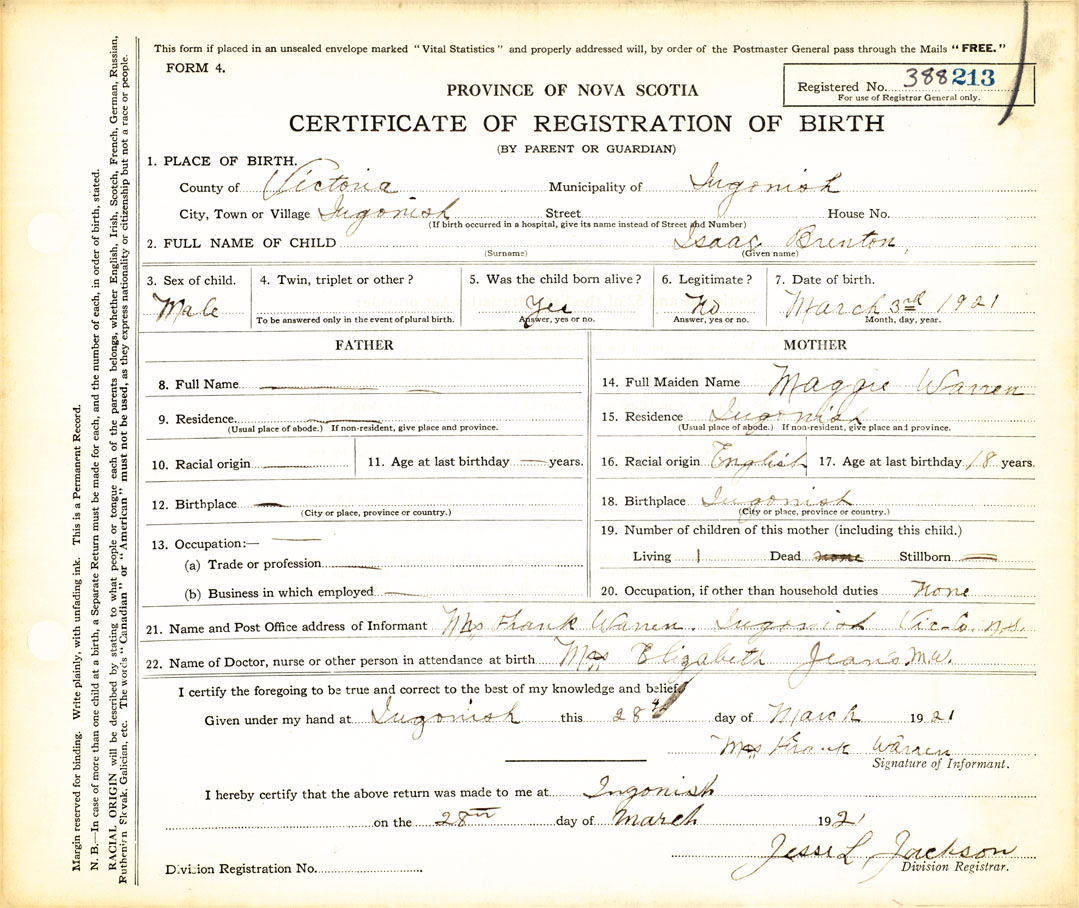 This form if placed in an unsealed envelope marked "Vital Statistics" and properly addressed will, by order of the Postmaster General pass through the Mails "FREE."
FORM 4.
Registered No. 388213
For use of Registrar General only.
PROVINCE OF NOVA SCOTIA
CERTIFICATE OF REGISTRATION OF BIRTH
(BY PARENT OR GUARDIAN)
1. PLACE OF BIRTH.
County of Victoria Municipality of Ingonish
City, Town or Village Ingonish Street House No.
(If birth occurred in a hospital, give its name instead of Street and Number)
2. FULL NAME OF CHILD Isaac Brenton,
(Surname) (Given name)
3. Sex of child. 4. Twin, triplet or other? 5. Was the child born alive? 6. Legitimate? 7. Date of birth.
Male Yes No March 3rd 1921
To be answered only in the event of plural birth. Answer, yes or no. Answer, yes or no. Month, day, year.
FATHER MOTHER
8. Full Name
14. Full Maiden Name Maggie Warren
9. Residence.
(Usual place of abode.) If non-resident, give place and province.
15. Residence Ingonish
(Usual place of abode.) If non-resident, give place and province.
10. Racial origin 11. Age at last birthday years.
16. Racial origin English 17. Age at last birthday 18 years.
12. Birthplace
(City or place, province or country.)
18. Birthplace Ingonish
(City or place, province or country.)
13. Occupation:—
(a) Trade or profession
(b) Business in which employed
19. Number of children of this mother (including this child.)
Living 1 Dead none Stillborn
20. Occupation, if other than household duties None
21. Name and Post Office address of Informant Mrs Frank Warren. Ingonish Vic. Co. N.S.
22. Name of Doctor, nurse or other person in attendance at birth Mrs Elizabeth Jeans M.W.
I certify the foregoing to be true and correct to the best of my knowledge and belief
Given under my hand at Ingonish this 28th day of March 1921
Mrs Frank Warren
Signature of Informant.
I hereby certify that the above return was made to me at Ingonish
on the 28th day of March 1921
Jesse L. Jackson
Division Registrar.
Division Registration No.
Margin reserved for binding. Write plainly, with unfading ink. This is a Permanent Record.
N. B.—In case of more than one child at a birth, a Separate Return must be made for each, and the number of each, in order of birth, stated.
RACIAL ORIGIN will be described by stating to what people or tongue each of the parents belongs, whether English, Irish, Scotch, French, German, Russian,
Ruthenian Slovak, Galician, etc. The words "Canadian" or "American" must not be used, as they express nationality or citizenship but not a race or people.